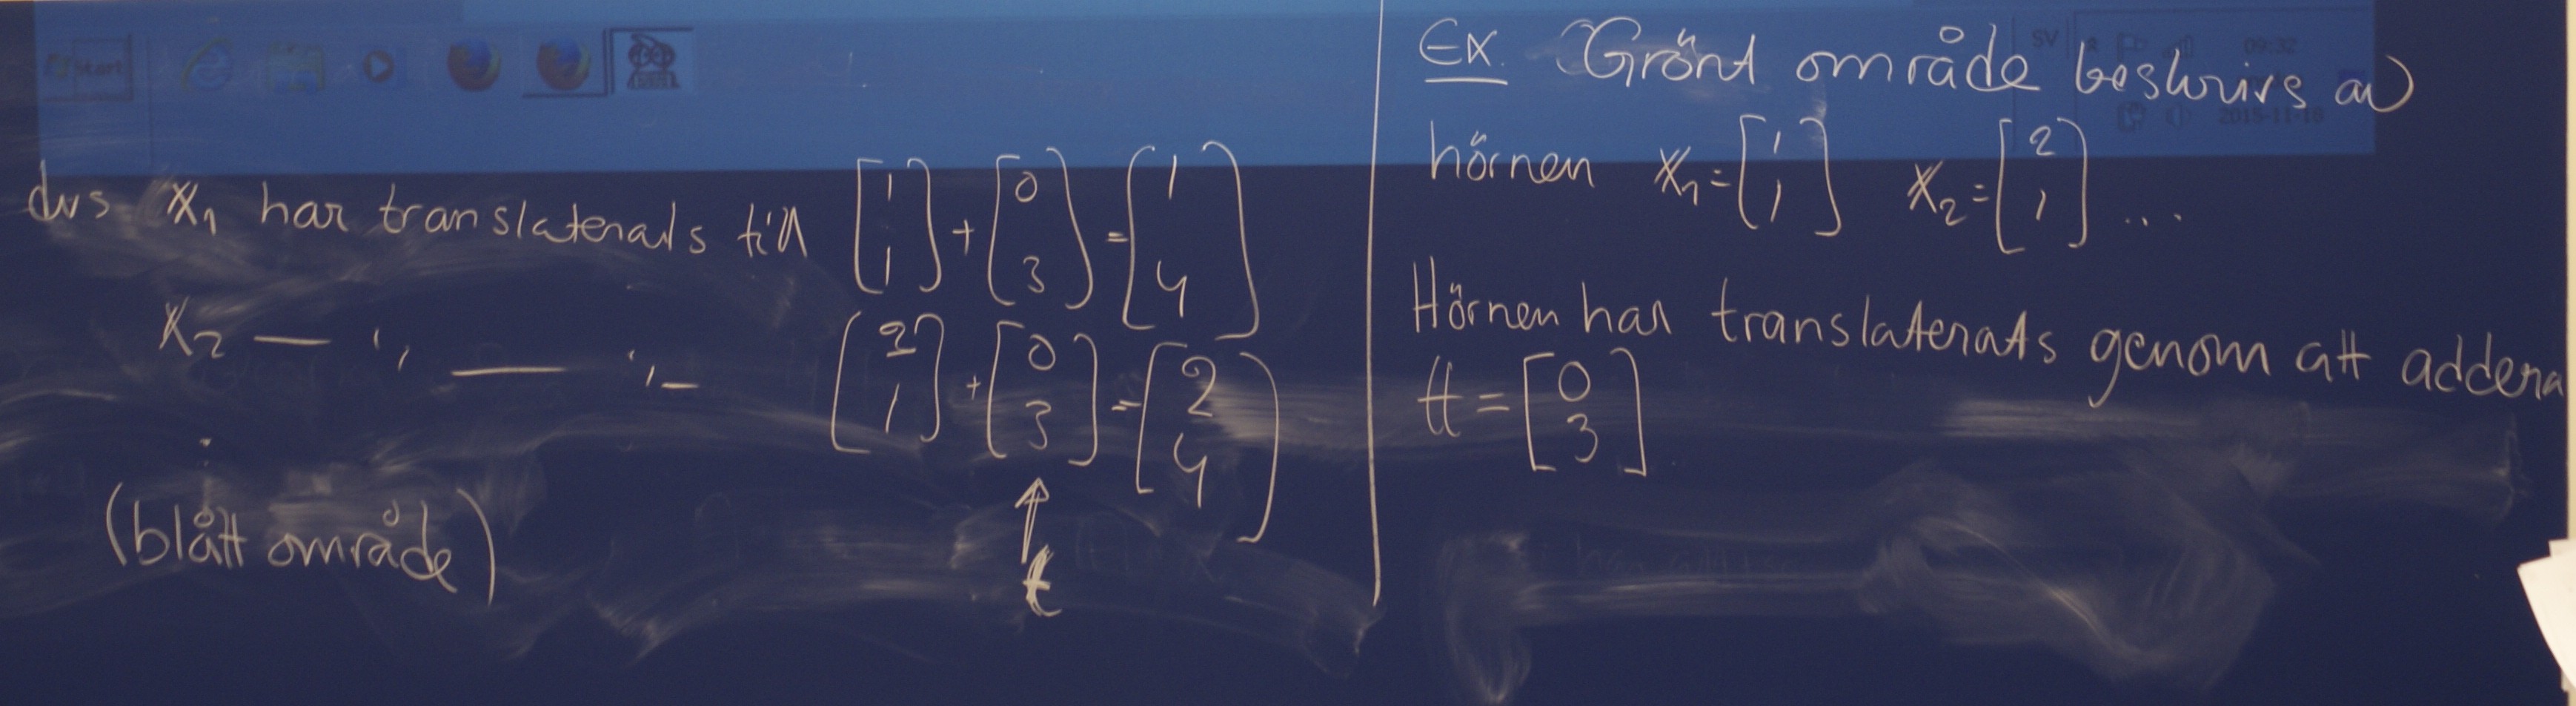 Start
SV
09:32
2015-11-18
dvs. x₁ har translaterats till [1 1] + [0 3] = [1 4]
x₂ — ,, — ,, — [2 1] + [0 3] = [2 4]
t
(blått område)
Ex. Grönt område beskrivs av
hörnen x₁ = [1 1] x₂ = [2 1] ...
Hörnen har translaterats genom att addera
t = [0 3]